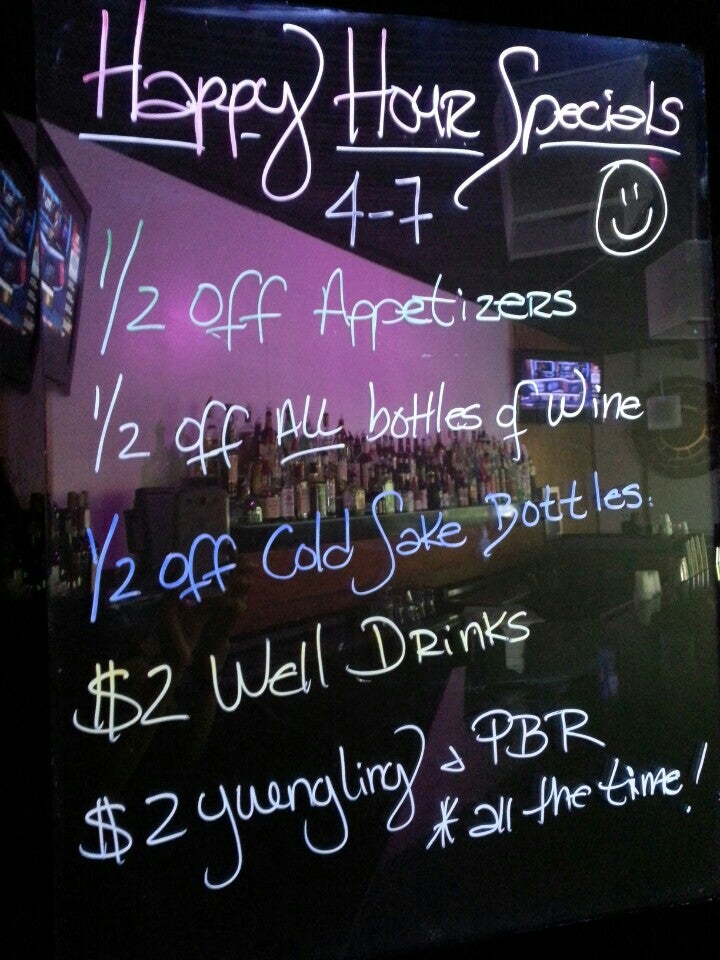 Happy Hour Specials
4-7
1/2 off Appetizers
1/2 off ALL bottles of wine
1/2 off Cold Sake Bottles.
$2 Well Drinks
$2 yuengling & PBR
* all the time!